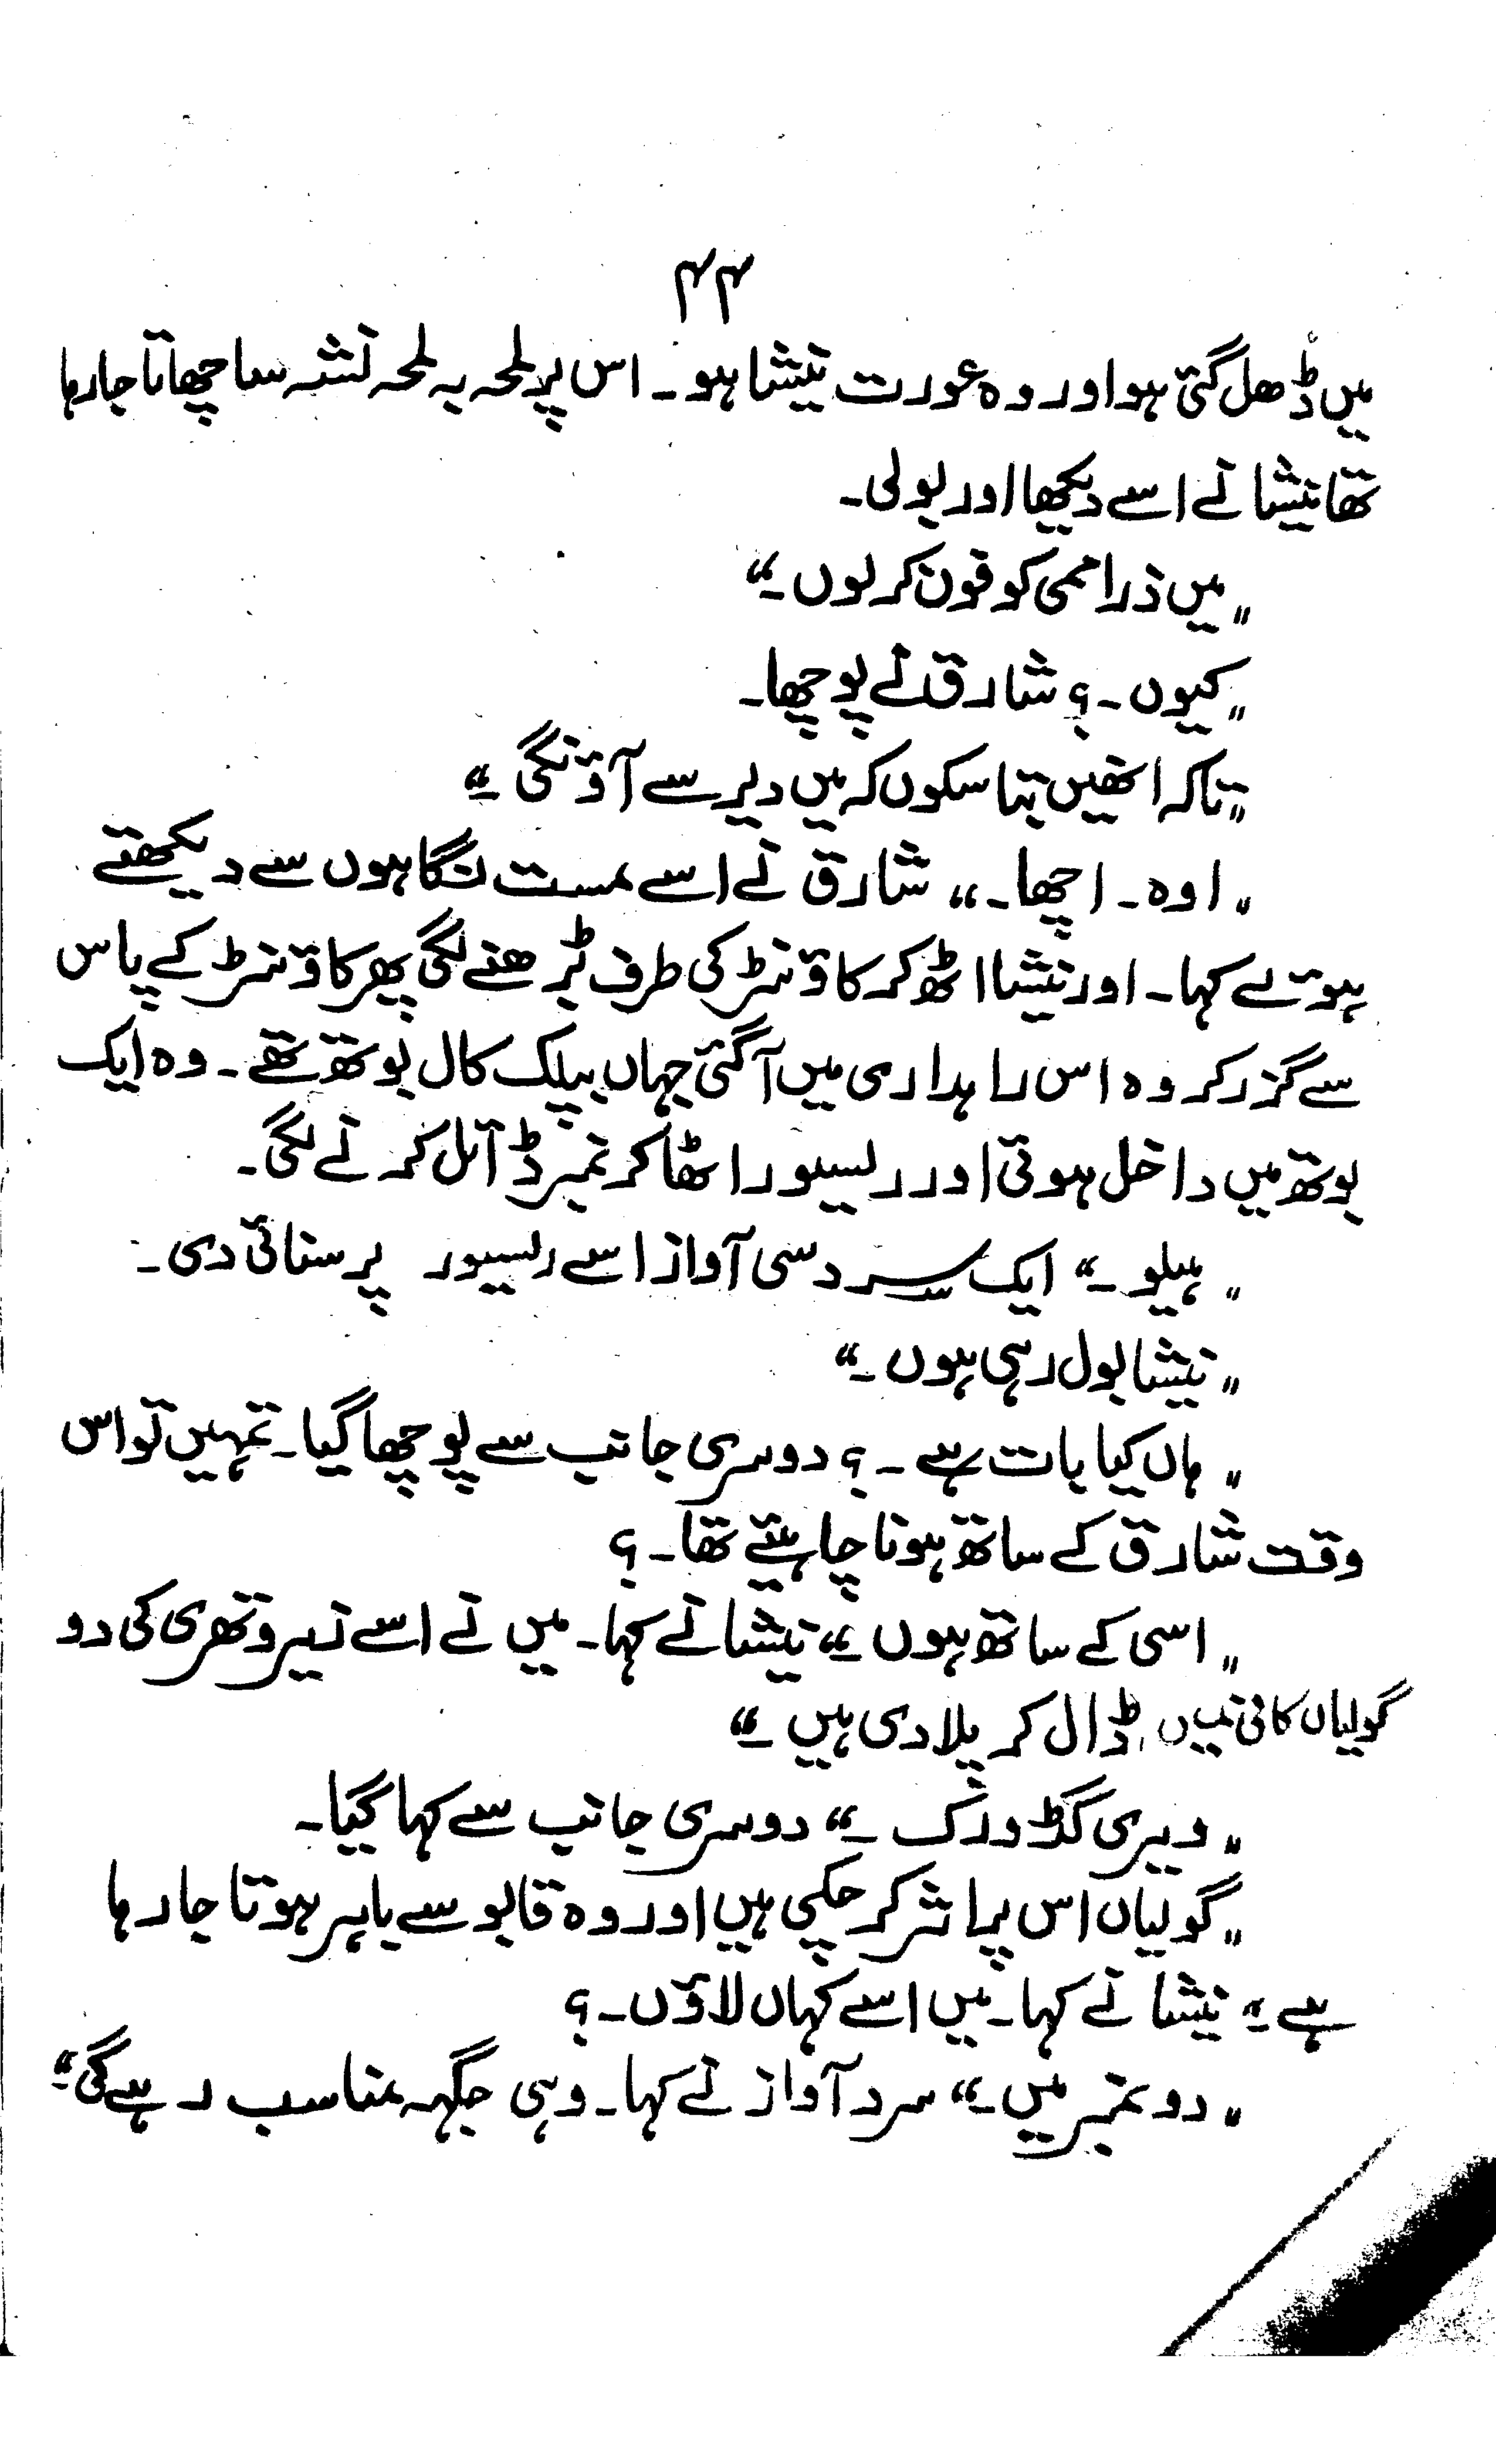 ۴۴
میں ڈھل گئی ہو اور وہ عورت نیشا ہو۔ اس پر لمحہ بہ لمحہ نشہ سا چھاتا جا رہا
تھا نیشا نے اسے دیکھا اور بولی۔
"میں ذرا ممی کو فون کر لوں۔"
"کیوں۔؟ شارق نے پوچھا۔
"تاکہ انھیں بتا سکوں کہ میں دیر سے آؤنگی۔"
"اوہ۔ اچھا۔" شارق نے اسے مست نگاہوں سے دیکھتے
ہوئے کہا۔ اور نیشا اٹھ کر کاؤنٹر کی طرف بڑھنے لگی پھر کاؤنٹر کے پاس
سے گزر کر وہ اس راہداری میں آ گئی جہاں پبلک کال بوتھ تھے۔ وہ ایک
بوتھ میں داخل ہوئی اور ریسیور اٹھا کر نمبر ڈائل کرنے لگی۔
"ہیلو۔" ایک سرد سی آواز اسے رسیور پر سنائی دی۔
"نیشا بول رہی ہوں۔"
"ہاں کیا بات ہے۔؟ دوسری جانب سے پوچھا گیا۔ تمہیں تو اس
وقت شارق کے ساتھ ہونا چاہیئے تھا۔؟
"اسی کے ساتھ ہوں۔" نیشا نے کہا۔ میں نے اسے زیرو تھری کی دو
گولیاں کافی میں ڈال کر پلا دی ہیں۔"
"ویری گڈ ورک۔" دوسری جانب سے کہا گیا۔
"گولیاں اس پر اثر کر چکی ہیں اور وہ قابو سے باہر ہوتا جا رہا
ہے۔" نیشا نے کہا۔ میں اسے کہاں لاؤں۔؟
"دو نمبر میں۔" سرد آواز نے کہا۔ وہی جگہ مناسب رہے گی۔"